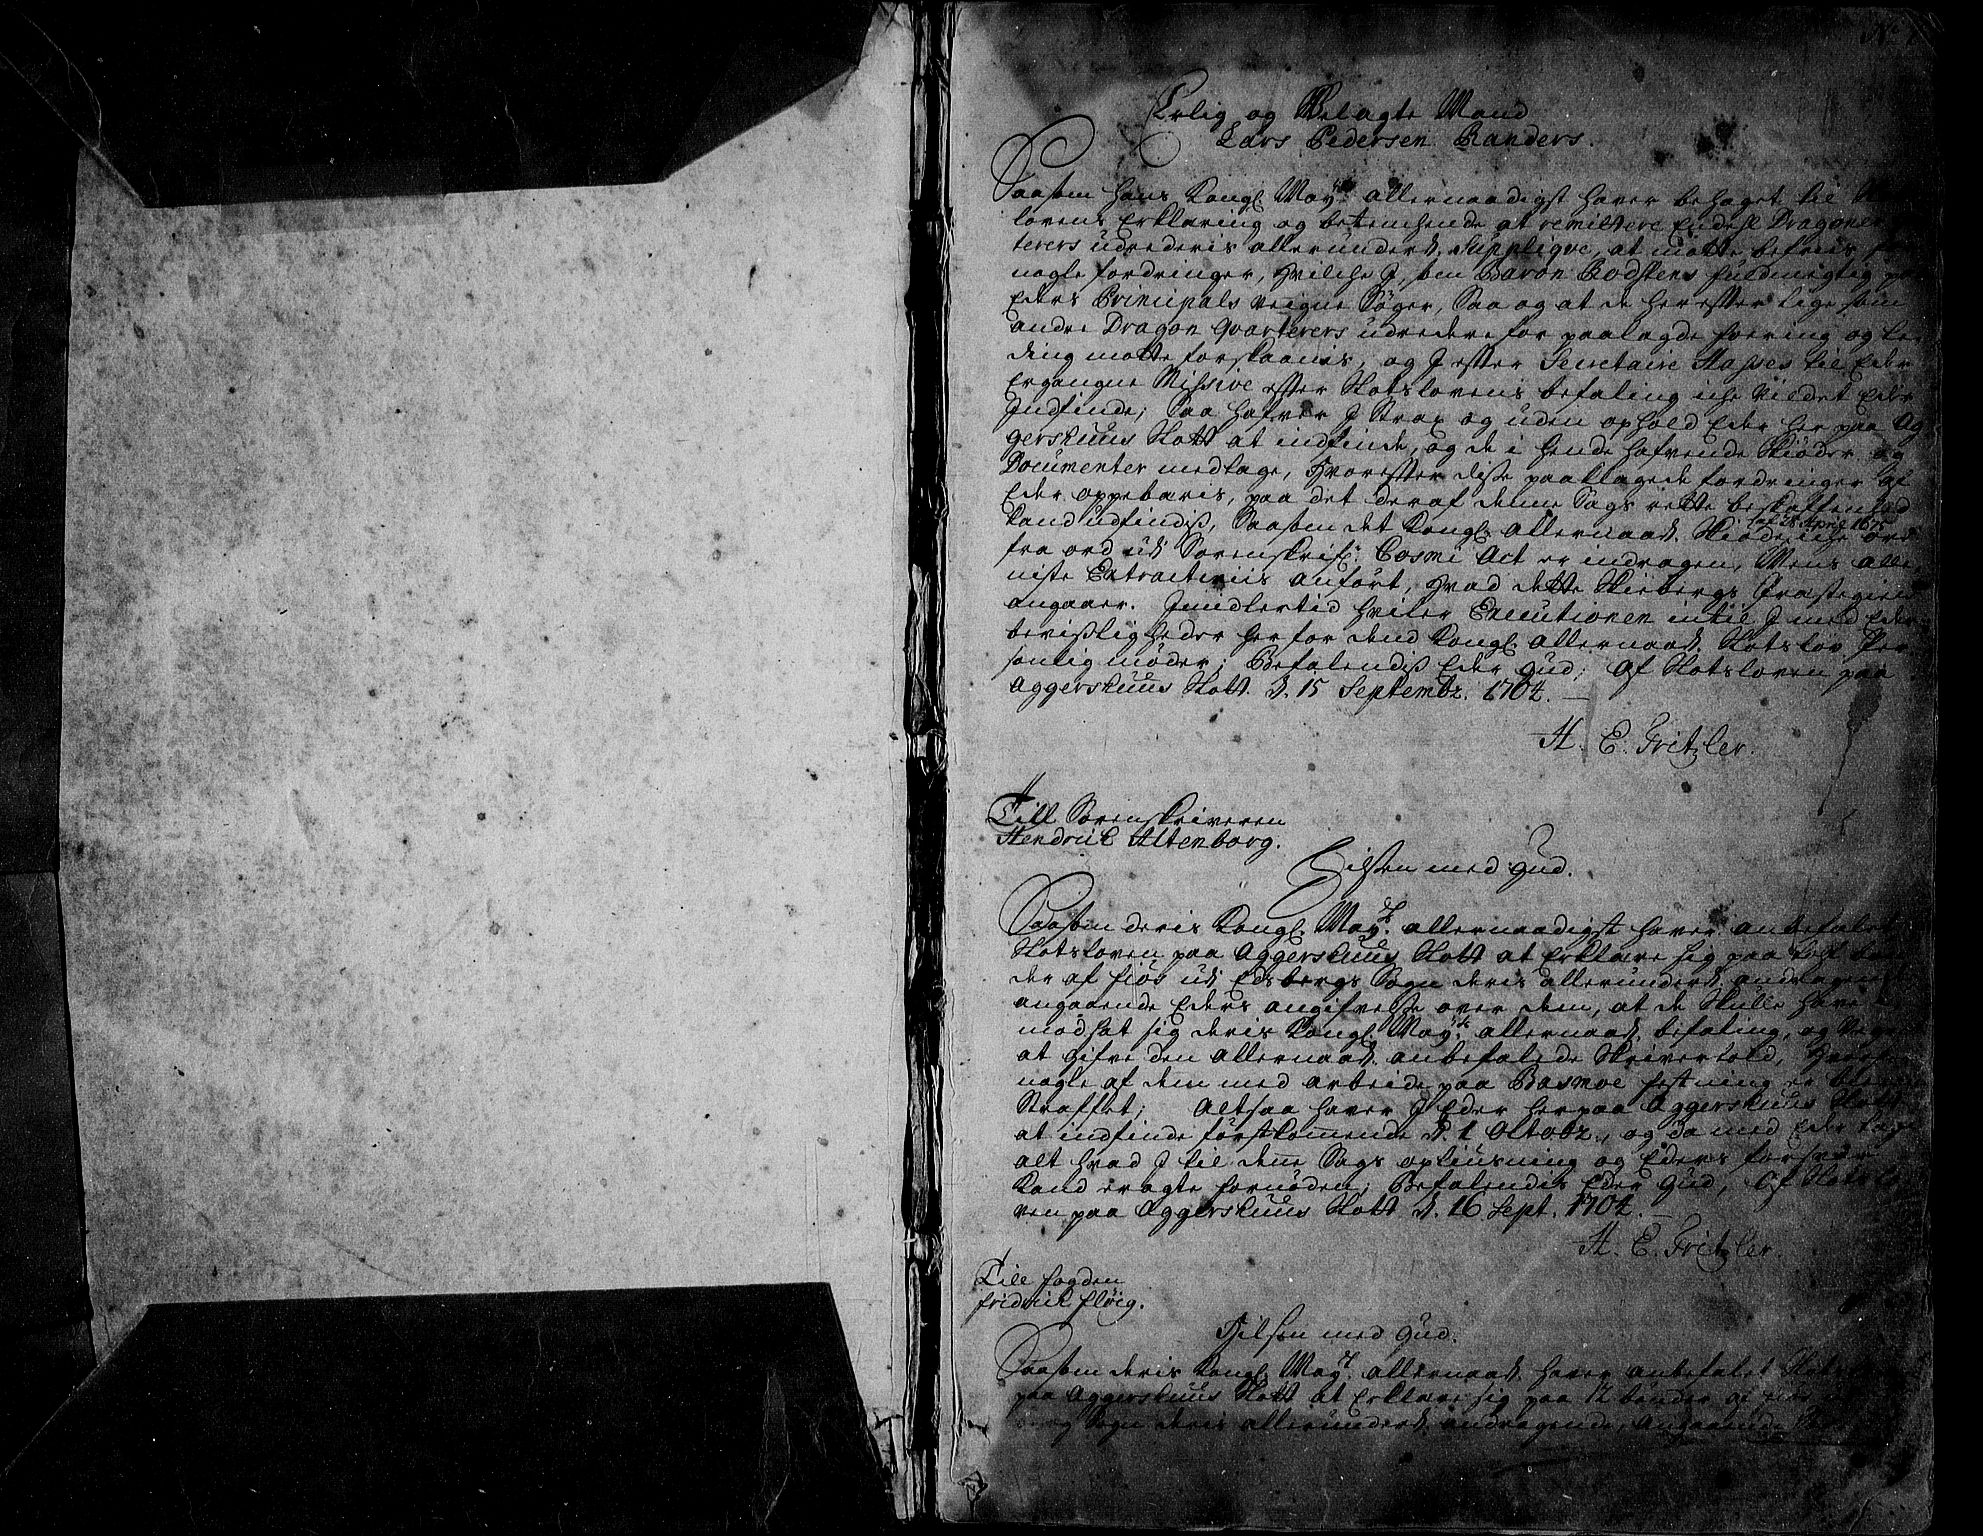 Erlig og Welagte Mand
Lars Pedersen Randers.
Saasom Hans Kongl. May: allernaadigst haver behaget til
lovens Erklæring og betenchende at remittere Endeel Dragoner
terers udrederis allerunderd. Supplique, at motte befries
nogle fordringer, hvilche I, som Baron Rodstens fuldmegtig
Eders Principals veigne søger, saa og at de her effter lige som
andre Dragon Qvarterers udredere for paalagde foering og
ding motte forskaanis, og I effter Secretaire Stasses til Eder
Ergangne Missive effter Slotslovens befaling iche vildet Eder
Indfinde; Saa hafver I Strax og uden ophold Eder her paa Ag
gershuus Slott at indfinde, og de i hende hafvende Skiøder og
Documenter medtage, hvoreffter disse paaklagede fordringer af
Eder oppebæris, paa det deraf denne Sags rette beskaffenhed
kand udfindis, Saasom det Kongl. allernaad. Skiøde iche ord
fra ord ud Sorenskrif: Cosmi Act er indragen, Mens alle
niste Extractviis anført, hvad dette Skiebergs
angaaer. Imidlertid hviler Executionen intil I med Eders
bevisligheder her for dend Kongl. allernaad. Slotslov Per
sonlig møder; Befalendis Eder Gud; Af Slotsloven paa
Aggershuus Slott d. 15 Septembr. 1704.
H. E. Fritzler.
Till Sorenskriveren
Hendrich Altenborg.
Hilsen med Gud.
Saasom deris Kongl. May: allernaadigst haver anbefalet
Slotsloven paa Aggershuus Slott at Erklære sig paa tolf
der af ud Edsbergs Sogn deris allerunderd. andragende
angaaende Eders angifvelse over dem, at de Skulle have
modsat sig deris Kongl. May: allernaad. befaling, og
at gifve den allernaad. anbefalede Skrivertold,
nogle af dem med arbeide paa Basmoe festning er
Straffet; Altsaa haver I Eder her paa Aggershuus Slott
at indfinde førstkomende d. 1 Octobr., og da med Eder tage
alt hvad I til denne Sags opliusning og Eders forsvar
kand eragte fornøden; Befalendis Eder Gud, Af Slotslo
ven paa Aggershuus Slott d. 16 Sept. 1704.
H. E. Fritzler.
Till fogden
fridrich fløig.
Hilsen med Gud.
Saasom deris Kongl. May: allernaad. haver anbefalet
paa Aggershuus Slott at Erklære sig paa 12 bønder
Sogn deris allerunderd. andragende, Angaaende